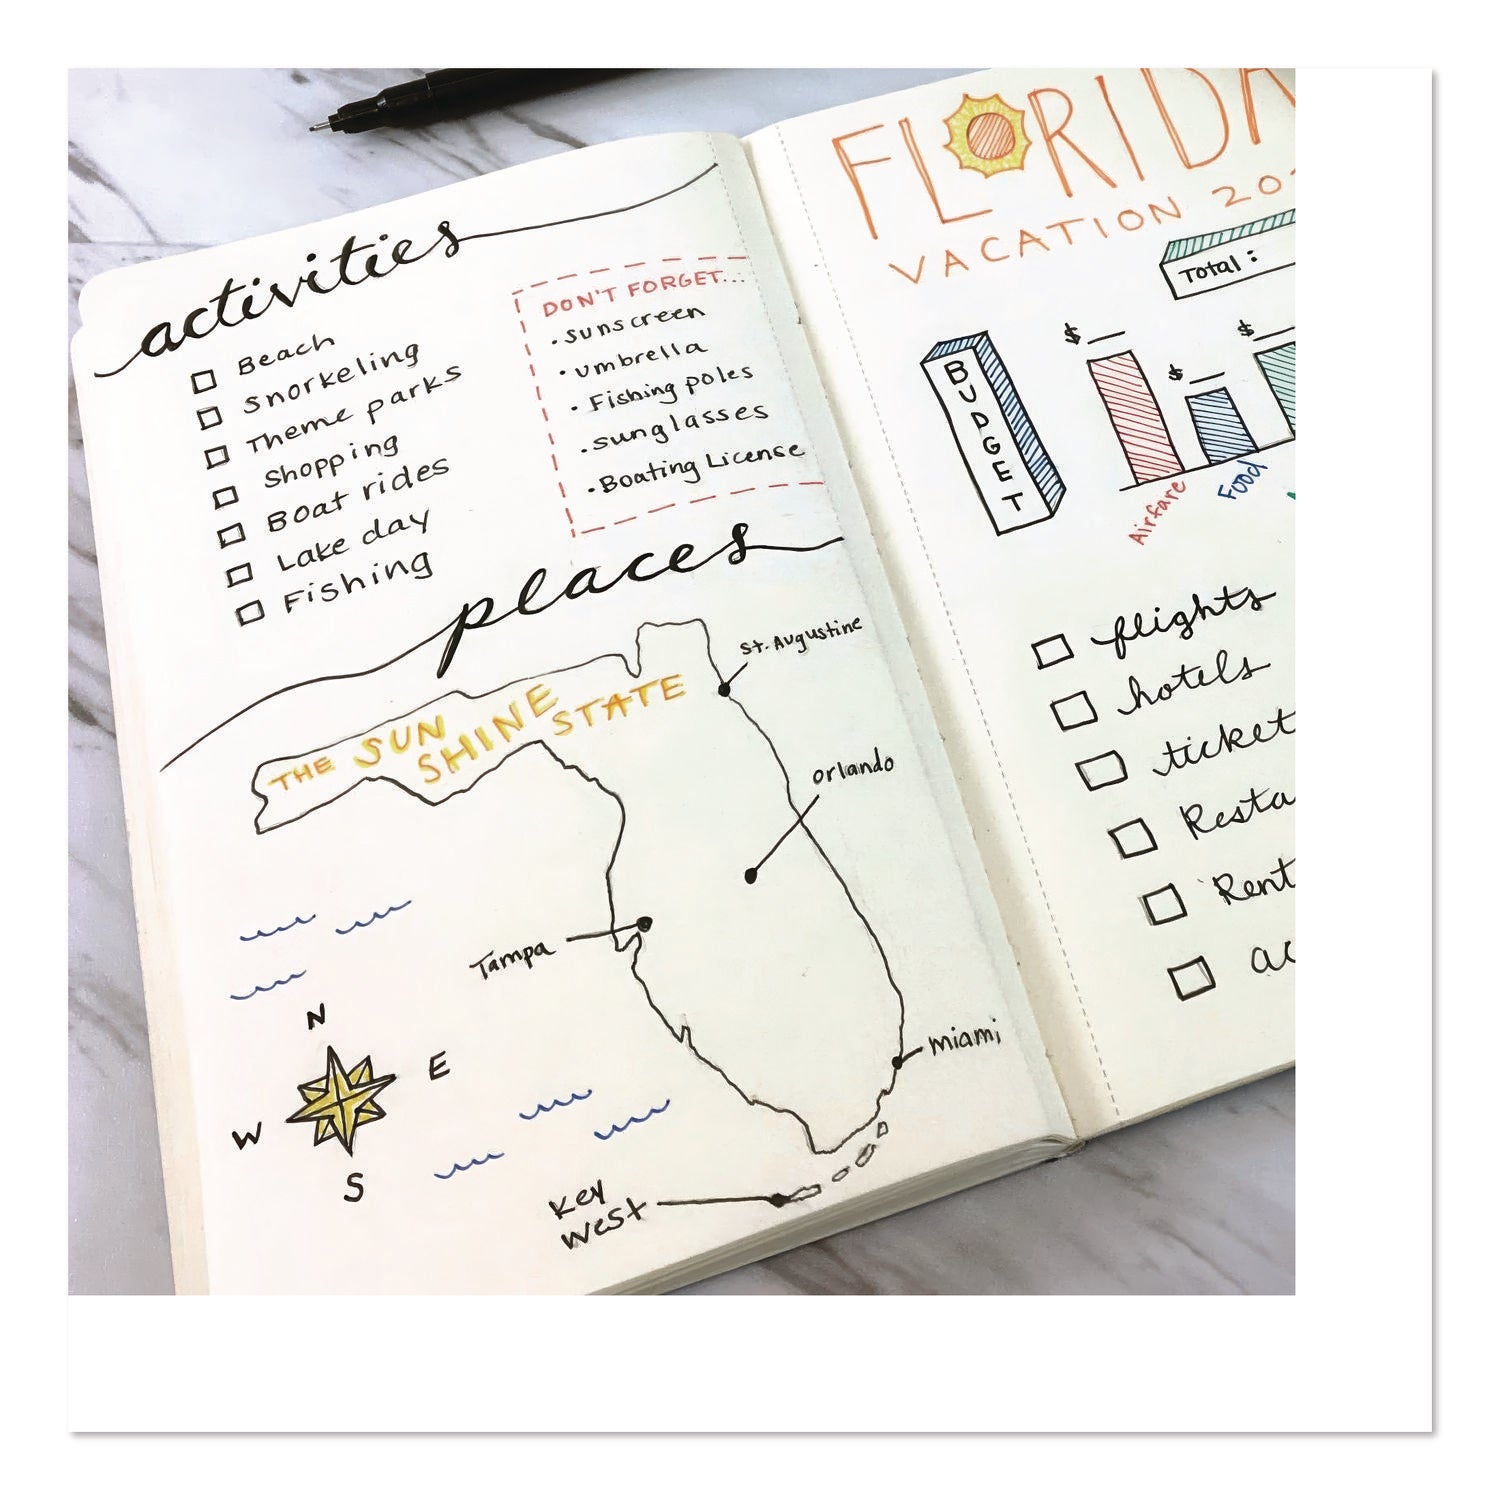 activities
Beach
Snorkeling
Theme parks
Shopping
Boat rides
Lake day
Fishing
DON'T FORGET...
• sunscreen
• umbrella
• Fishing poles
• sunglasses
• Boating License
places
THE SUN
SHINE STATE
St. Augustine
Orlando
Tampa
Miami
Key
West
N
E
W
S
FLORIDA
VACATION 20
Total:
BUDGET
$
$
$
Airfare
Food
flights
hotels
ticket
Resta
Rent
ac